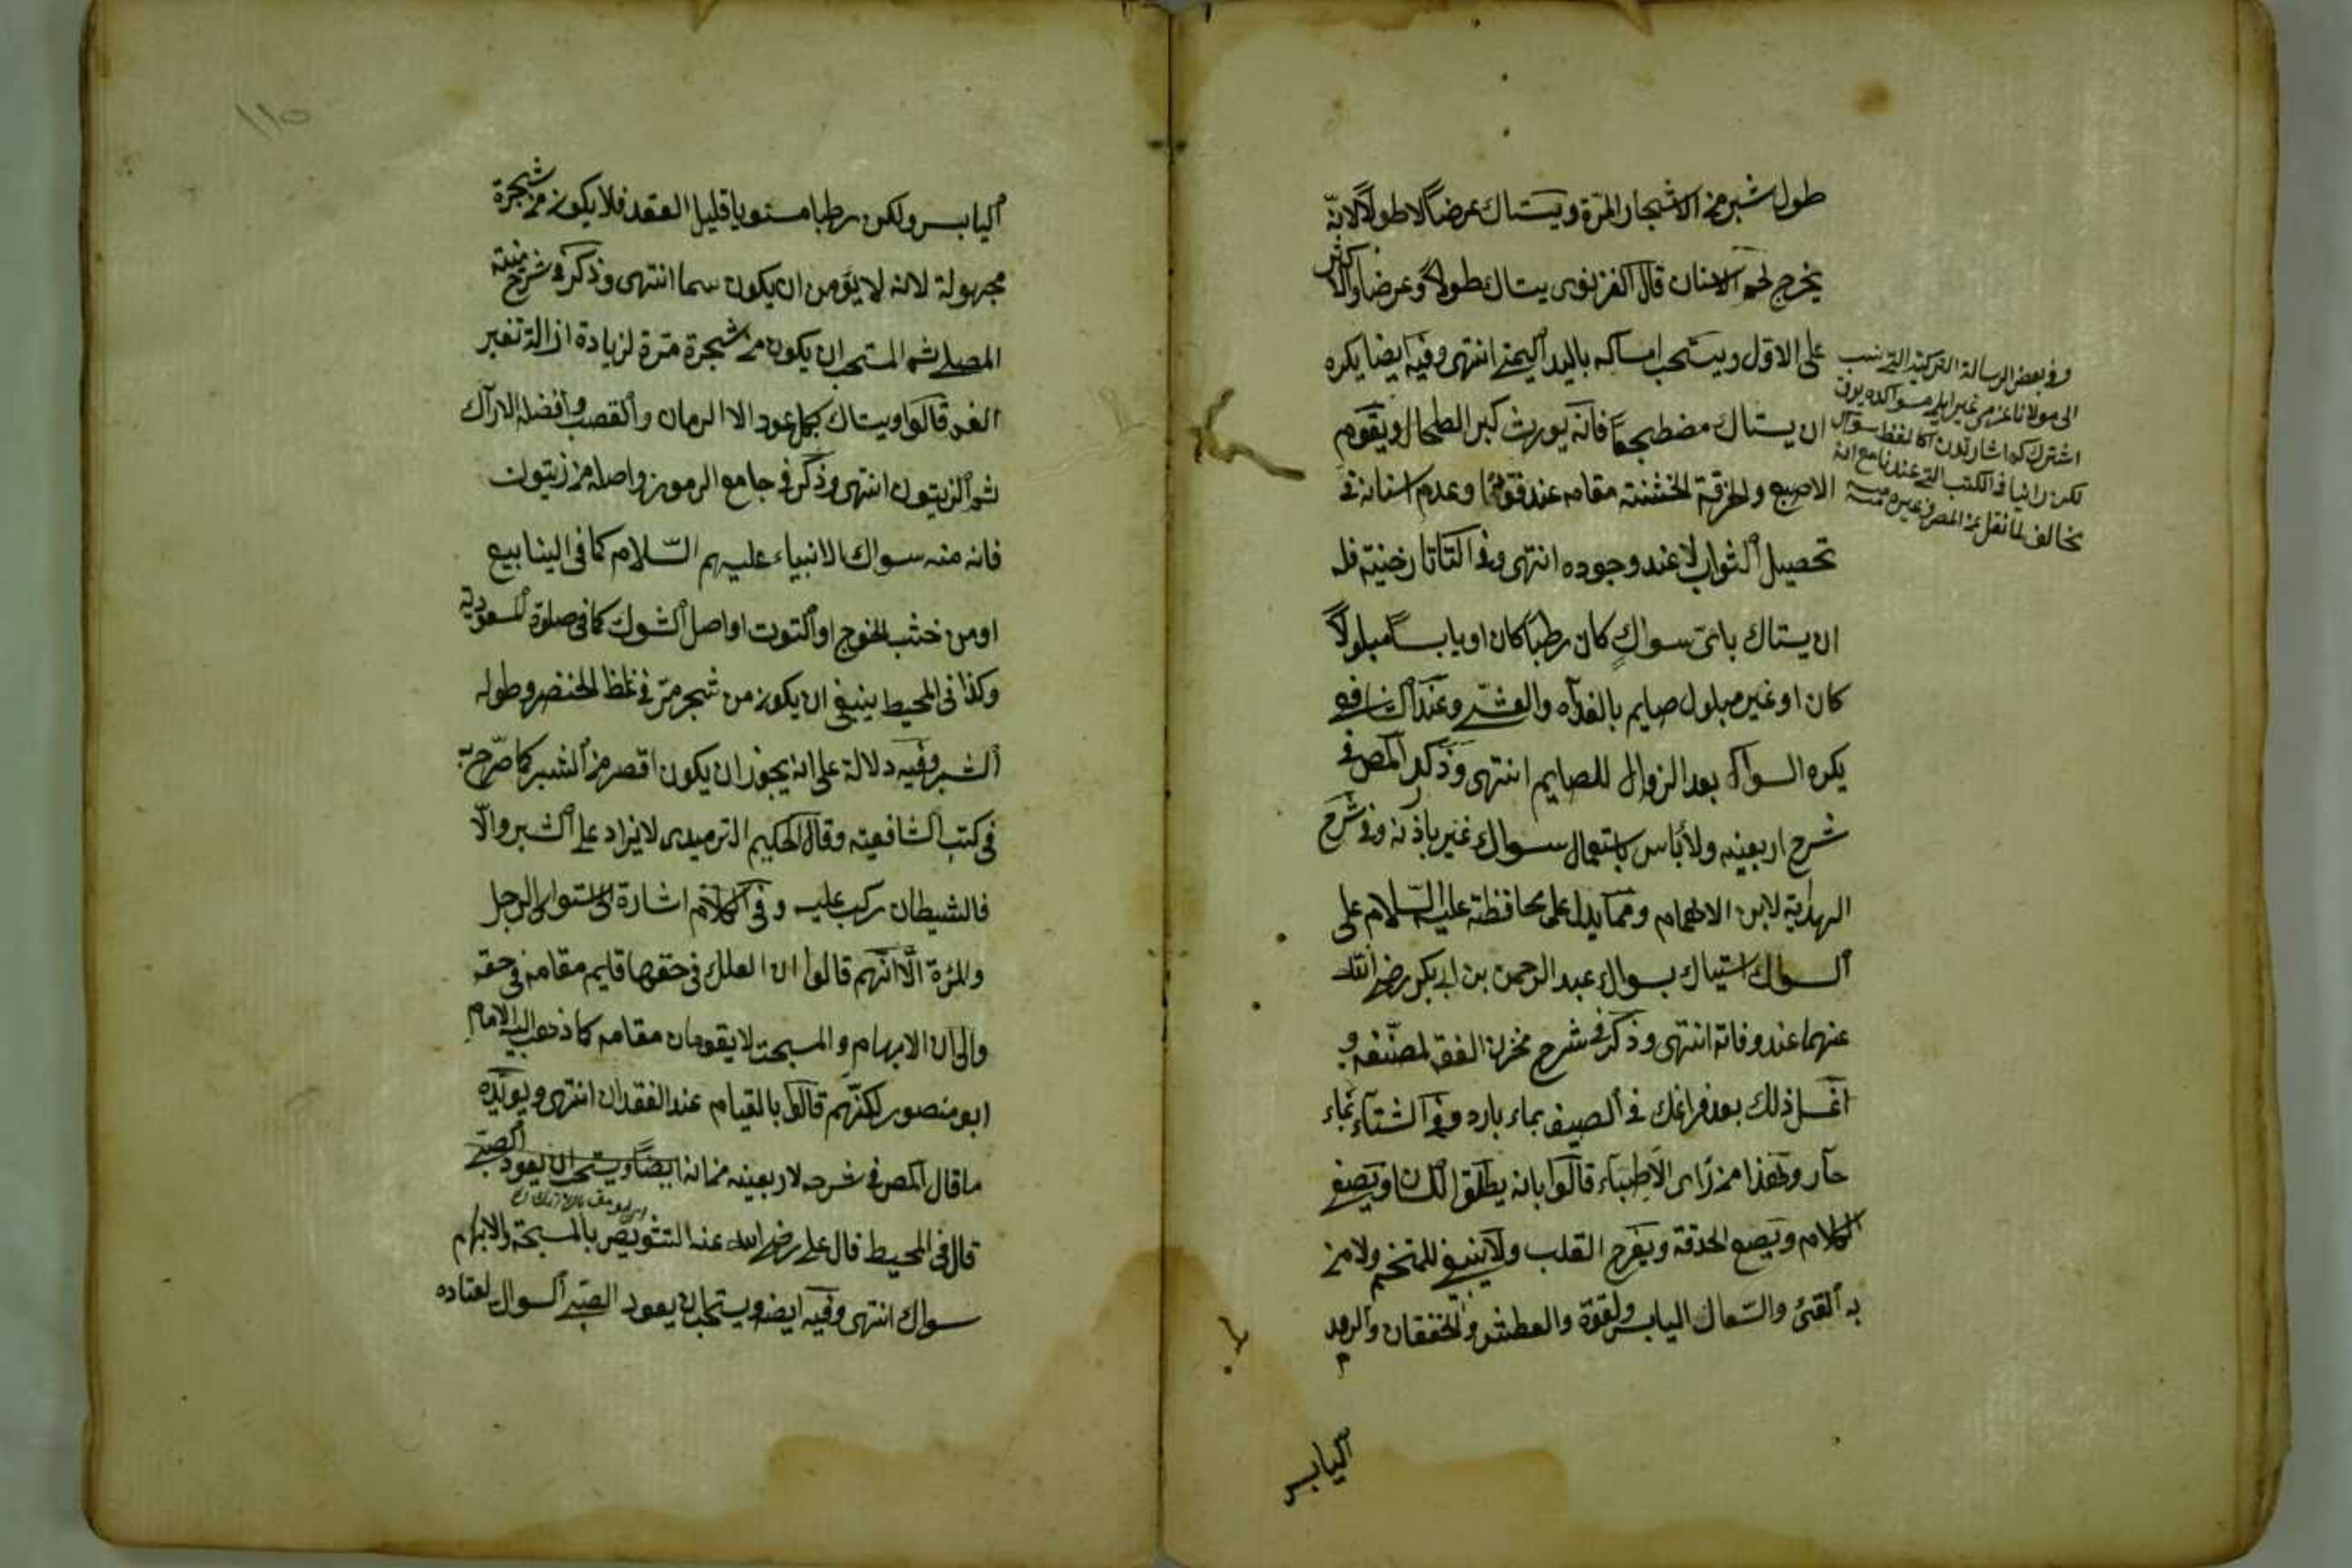 طول شبر من الاشجار المرة ويستاك عرضًا لا طولًا لانّه
يخرج لحم الاسنان قال الغزنوى يستاك طولًا وعرضا والاكثر
على الاول ويستحب امساكه باليد اليمنى انتهى وفيه ايضا يكره
ان يستاك مضطجعًا فانه يورث كبر الطحال ويقوم
الاصبع والخرقة الخشنة مقامه عند فقده او عدم اسنانه فى
تحصيل الثواب لا عند وجوده انتهى وفى التاتارخنية فله
ان يستاك باىّ سواكٍ كان رطبًا كان او يابسًا مبلولًا
كان او غير مبلول صايم بالغداة والعشى وعند الشافعى
يكره السواك بعد الزوال للصايم انتهى وذكر المص فى
شرح اربعينه ولا بأس باستعمال سواك غير باذنه وفى شرح
الهداية لابن الهمام ومما يدل على محافظة عليه السّلام على
السواك استياك بسواك عبد الرحمن بن ابى بكر رضى الله
عنهما عند وفاته انتهى وذكر فى شرح مخزن الفقه لمصنّفه و
اغسل ذلك بعد فراغك فى الصيف بماء بارد وفى الشتاء بماء
حار وهذا من رأى الاطباء قالوا بانه يطلق اللسان ويصفى
الكلام ويصع الحدقة ويفرح القلب ولا ينبغى للمتخم ولا من
به القئ والسّعال اليابس ولقوة والعطش والخفقان والرمد
اليابس
وفى بعض الرسالة التركية التى نسب
الى مولانا
لكن رأينا فى الكتب التى عندنا مع انه
يخالف لما نقل عن المص وغيره منه
١١٥
اليابس ولكن رطبا مستويا قليل العقد فلا يكون من شجرة
مجهولة لانه لا يؤمن ان يكون سما انتهى وذكر فى شرح منية
المصلى ثم المستحب ان يكون من شجرة مرّة لزيادة ازالة تغير
الفم قالوا ويستاك بكل عود الا الرمان والقصب وافضله الاراك
ثم الزيتون انتهى وذكر فى جامع الرموز واصله من زيتون
فانه منه سواك الانبياء عليهم السّلام كما فى الينابيع
او من خشب الخوج او التوت او اصل الشوك كما فى صلوة المسعودية
وكذا فى المحيط ينبغى ان يكون من شجر مرّ فى غلظ الخنصر وطوله
الشبر وفيه دلالة على انه يجوز ان يكون اقصر من الشبر كما صرّح به
فى كتب الشافعية وقال الحكيم الترميدى لا يزاد على الشبر والّا
فالشيطان ركب عليه وفى الكلام اشارة الى استواء الرجل
والمرة الّا انّهم قالوا ان العلك فى حقها قايم مقامه فى حقه
والى ان الابهام والمسبحة لا يقومان مقامه كما ذهب اليه الامام
ابو منصور لكنّهم قالوا بالقيام عند الفقدان انتهى ويؤيّده
ما قال المص فى شرحه لاربعينه من انه ايضًا ويستحب ان يعود الصبى
قال فى المحيط قال على رضى الله عنه التشويص بالمسبحة والابهام
سواك انتهى وفيه ايضا ويستحب ان يعود الصبى السواك لعتاده